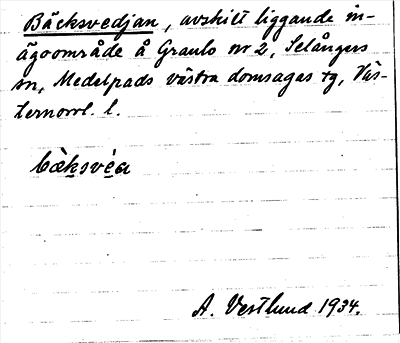 Bäcksvedjan, avskilt liggande in-
ägoområde å Granlo nr 2, Selångers
sn, Medelpads västra domsagas tg, Väs-
ternorrl. l.
bæ̀ksvéa
A. Vestlund 1934.